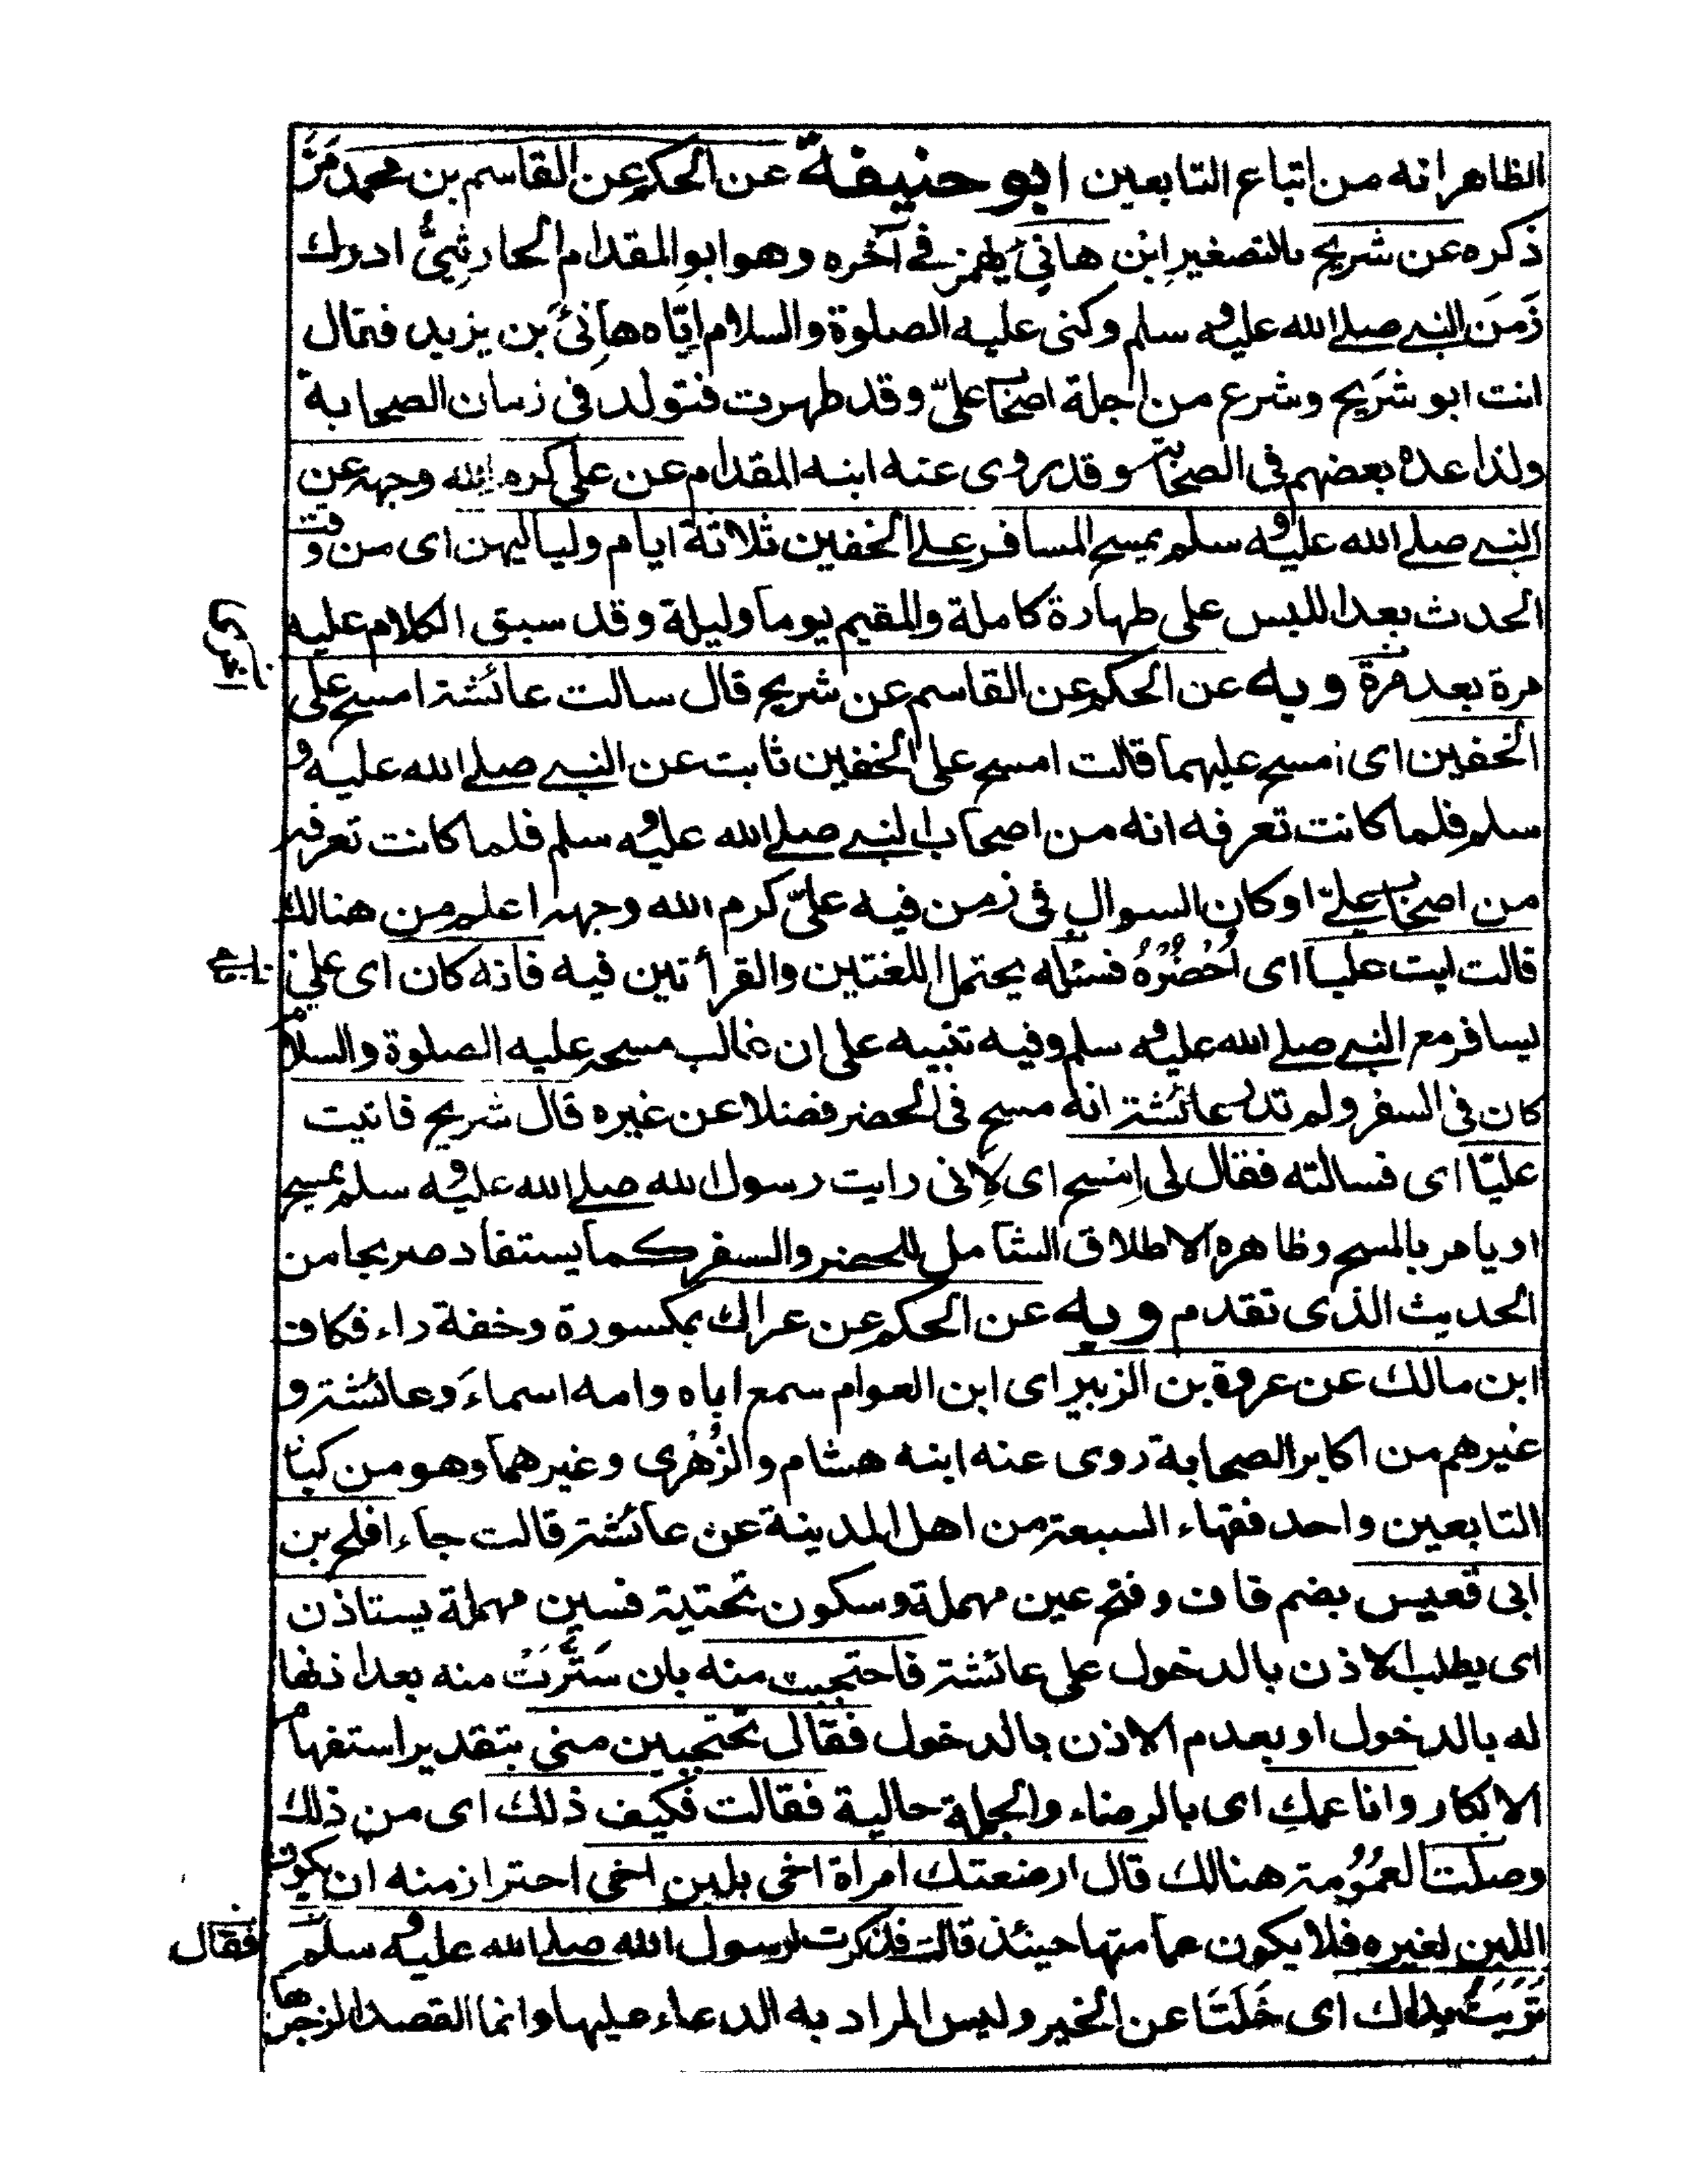 الظاهر انه من اتباع التابعين ابو حنيفة عن الحكم عن القاسم بن محمد مَرَّ
ذكره عن شريح بالتصغير ابن هانئ بهمز في آخره وهو ابو المقدام الحارثيُّ ادرك
زَمَنَ النبي صلى الله عليه و سلم وكنى عليه الصلوة والسلام ايّاه هانئ بن يزيد فقال
انت ابو شريح وشرع من اجلة اصحاب عليّ وقد ظهرت فتولد في زمان الصحابة
ولذا عده بعضهم في الصحابة وقد روى عنه ابنه المقدام عن علي كرم الله وجهه عن
النبي صلى الله عليه و سلم يمسح المسافر على الخفين ثلاثة ايام ولياليهن اى من وقت
الحدث بعد اللبس على طهارة كاملة والمقيم يوما وليلة وقد سبق الكلام عليه
مرة بعد مرة وبه عن الحكم عن القاسم عن شريح قال سالت عائشة امسح على
الخفين اى أمسح عليهما قالت امسح على الخفين ثابت عن النبي صلى الله عليه و
سلم فلما كانت تعرفه انه من اصحاب النبي صلى الله عليه و سلم فلما كانت تعرفه
من اصحاب عليّ او كان السوال في زمن فيه عليّ كرم الله وجهه اعلم من هنالك
قالت ايت عليا اى اُحْضُرْهُ فسئله يحتمل اللغتين والقرأتين فيه فانه كان اى علي
يسافر مع النبي صلى الله عليه و سلم وفيه تنبيه على ان غالب مسحه عليه الصلوة والسلام
كان في السفر ولم تدر عائشة انه مسح في الحضر فضلا عن غيره قال شريح فاتيت
عليّا اى فسالته فقال لي اِمْسح اى لاِنى رايت رسول الله صلى الله عليه و سلم يمسح
او يامر بالمسح وظاهره الاطلاق الشامل للحضر والسفر كما يستفاد صريحا من
الحديث الذى تقدم وبه عن الحكم عن عراك بمكسورة وخفة راء فكاف
ابن مالك عن عروة بن الزبير اى ابن العوام سمع اباه وامه اسماءَ وعائشة و
غيرهم من اكابر الصحابة روى عنه ابنه هشام والزُهْرى وغيرهما وهو من كبار
التابعين واحد فقهاء السبعة من اهل المدينة عن عائشة قالت جاء افلح بن
ابى قعيس بضم قاف وفتح عين مهملة وسكون تحتية فسين مهملة يستاذن
اى يطلب الاذن بالدخول على عائشة فاحتجبت منه بان سَتَّرَتْ منه بعد اذنها
له بالدخول او بعدم الاذن بالدخول فقال تحتجبين منى بتقدير استفهام
الانكار وانا عمكِ اى بالرضاء والجملة حالية فقالت فكيف ذلك اى من ذلك
وصلت العُمُوْمة هنالك قال ارضعتك امراة اخى بلبن اخى احتراز منه ان يكون
اللبن لغيره فلا يكون عما متها حينئذ قالت فذكرت لرسول الله صلى الله عليه و سلم فقال
تَرِبَتْ يداك اى خَلَتَا عن الخير وليس المراد به الدعاء عليها وانما القصد الزجر